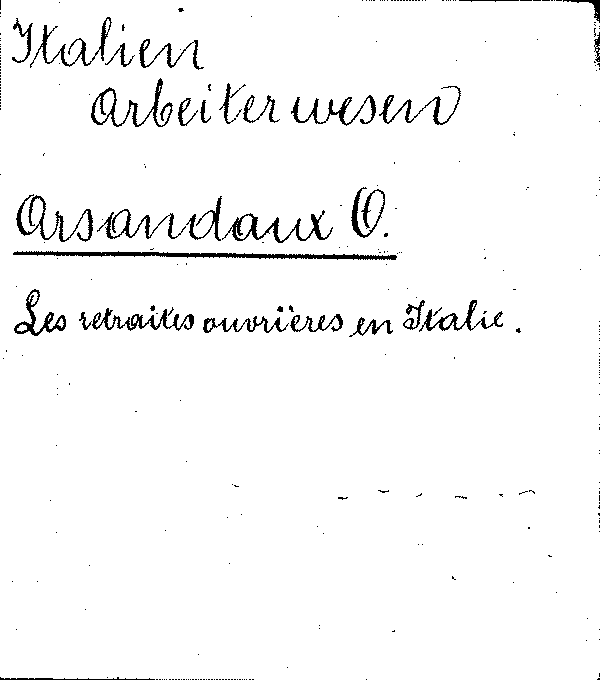 Italien
Arbeiterwesen
Arsandaux O.
Les retraites ouvrières en Italie.